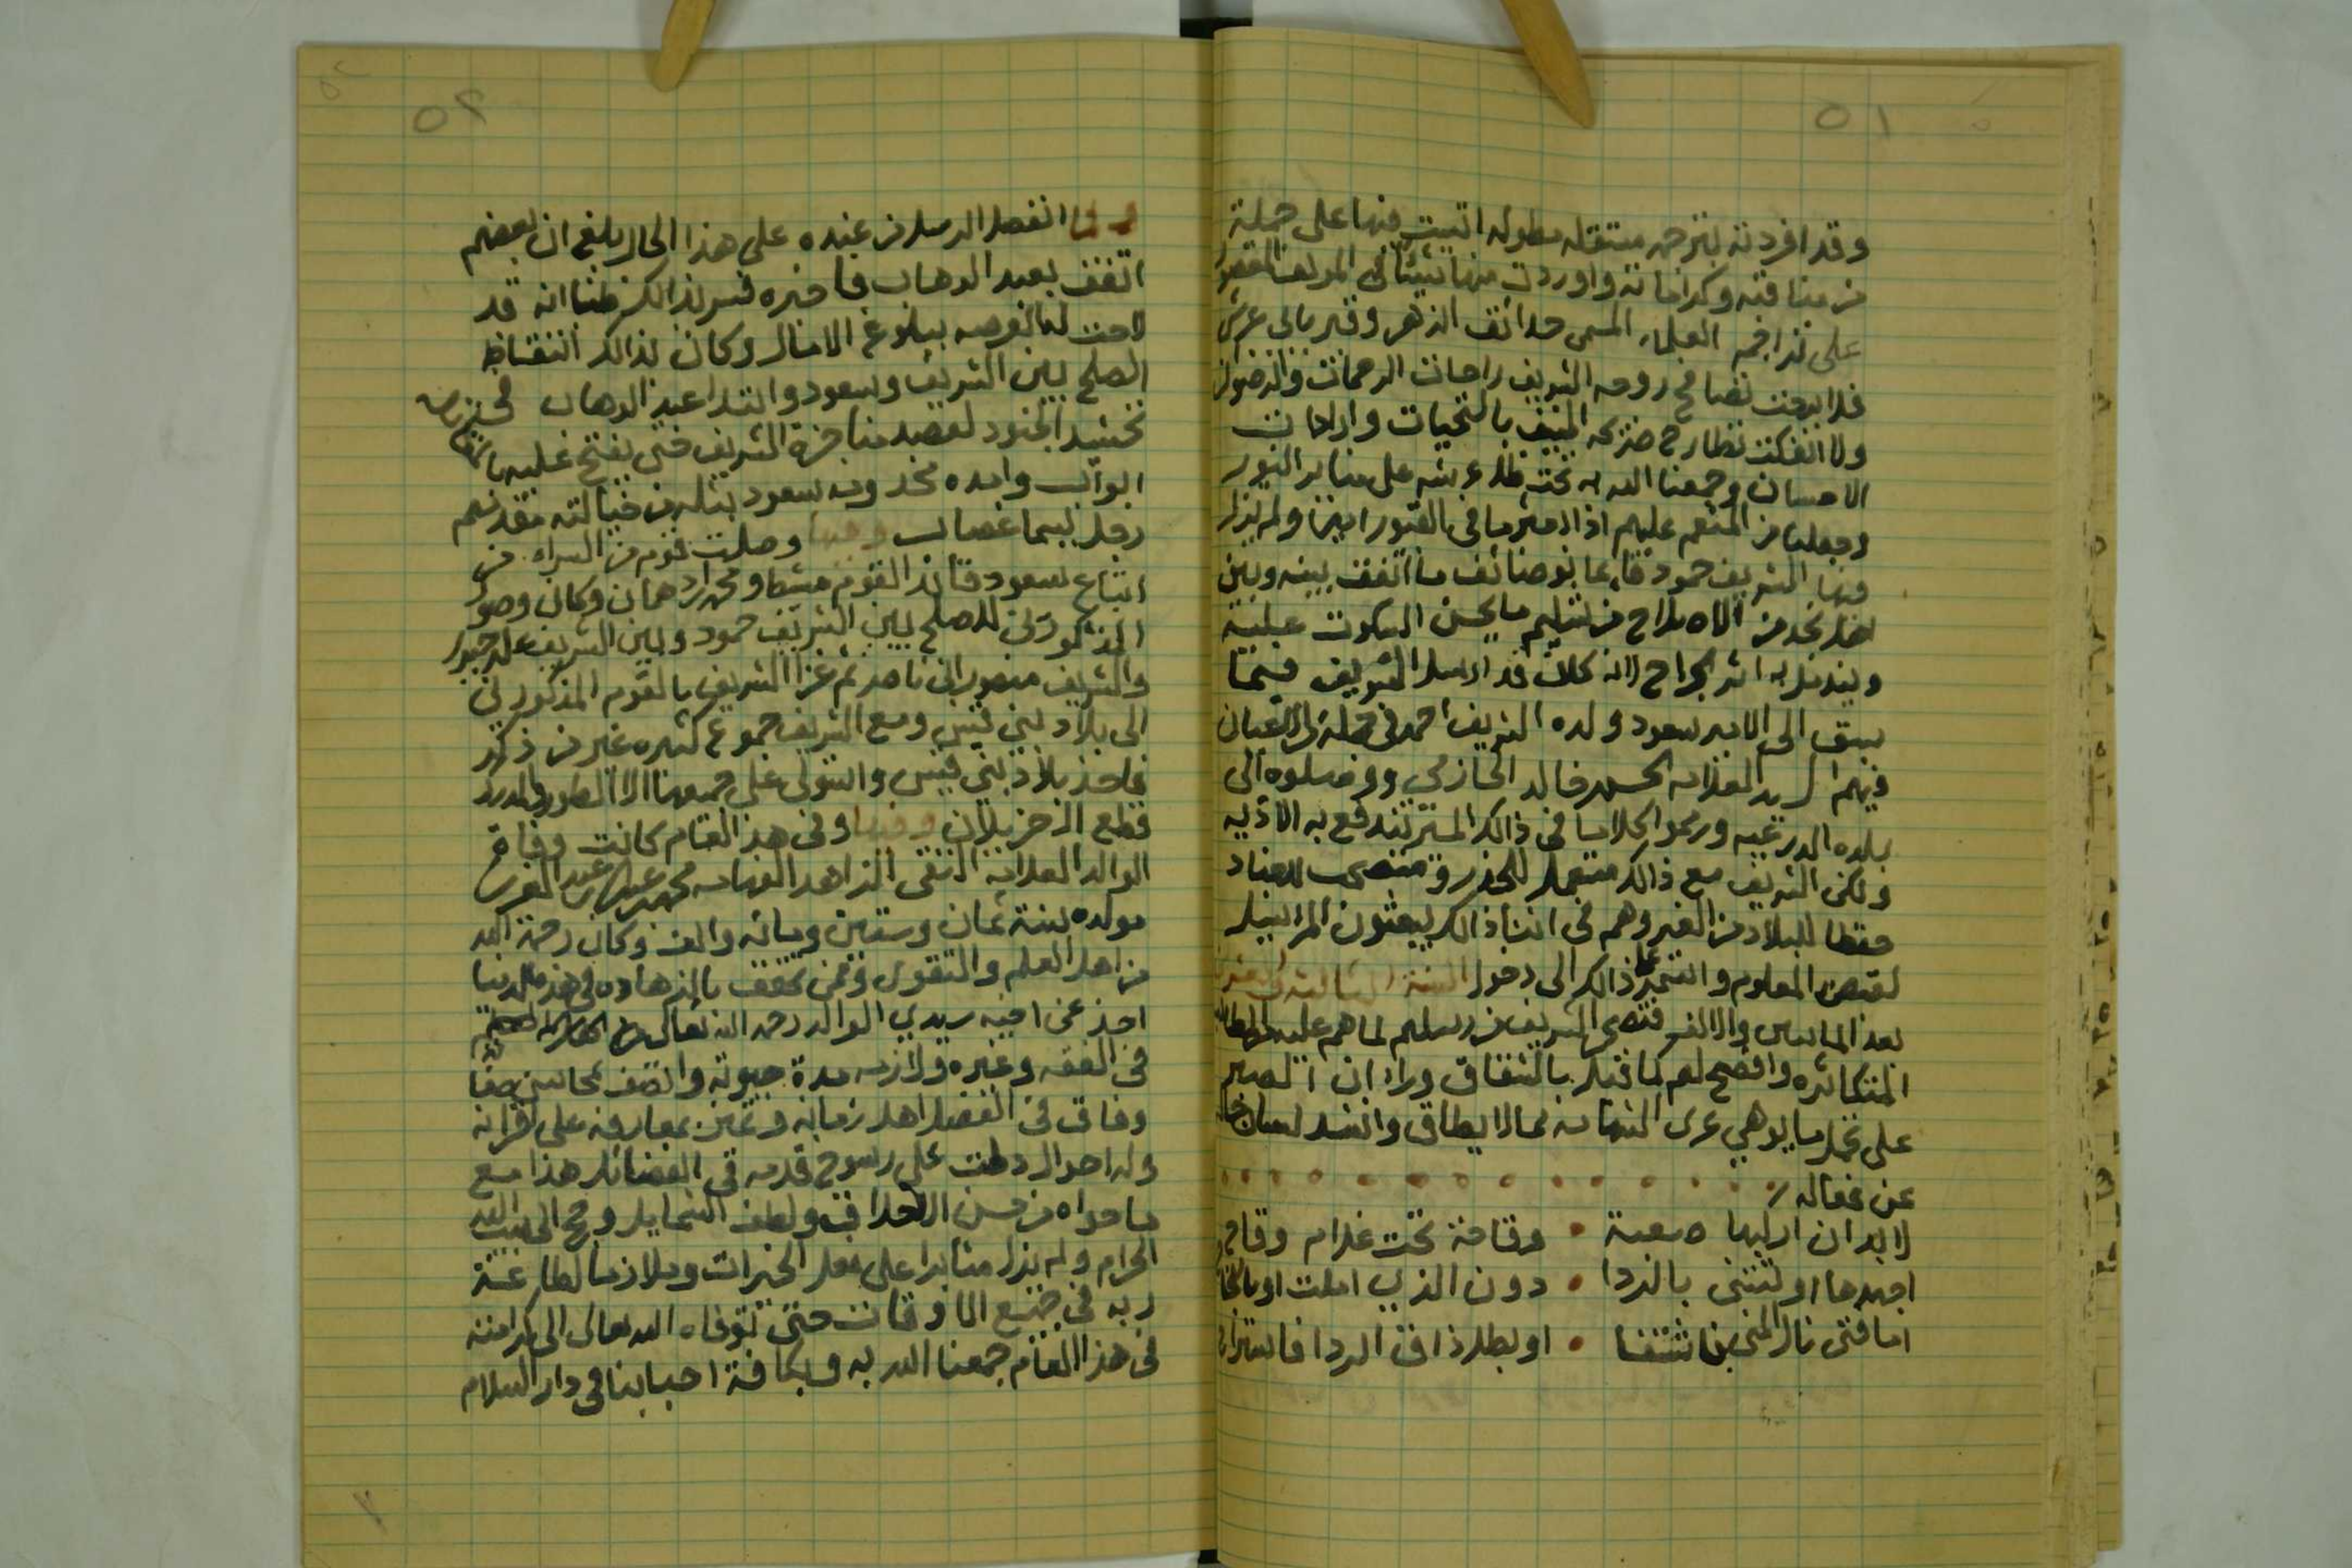 ٥١
وقد افردته بترجمه مستقله مطوله اتيت فيها على جملة
من مناقبه وكراماته واوردت منها شيئا في المولف المقصور
على تراجم العلماء المسمى حدائق الزهر وقبر بابي عريش
فلا برحت تصافح روحه الشريف راحات الرحمات والرضوان
ولا انفكت تطارح ضريحه المنيف بالتحيات
الاحسان وجمعنا الله به تحت ظل عرشه على منابر النور
وجعلنا من المنعم عليهم اذا بعثر ما في القبور امين ولم يزل
فيها الشريف حمود قائما بوضائف ما اتفق بينه وبين
اهل نجد من الاصلاح من تسليم ما يحسن السكوت عليه
ويندمل به اثر الجراح لانه كان قد ارسل الشريف فيما
سبق الى الامير سعود ولده الشريف احمد في جملة من الاعيان
فيهم السيد العلامه الحسن خالد الحازمي ووصلوه الى
بلده الدرعيه ورموا كلاما في ذالك المستر تندفع به الاذيه
ولكن الشريف مع ذالك مستعمل للحذر ومنتصب للعناد
حفظا للبلاد من الغير وهم في اثنا ذالك يبعثون المراسيل
لقبض المعلوم واستمر على ذالك الى دخول السنة الثالثه والعشرين
بعد المايتين والالف فتضجر الشريف من رسلهم لما هم عليه من المطالب
المتكاثره وافصح لهم كما قيل بالشقاق وراى ان الصبر
على تحمل ما يوهي عرى الشهامه مما لا يطاق وانشد لسان حاله
عن مقاله
لا بد ان اركبها صعبة • وقاحة تحت غلام وقاح
اجهدها او تنثني بالردا • دون الذي املت او بالنجاح
اما فتى نال المنى فاشتفا • او بطل ذاق الردا فاستراح
٥٢
ولما انفصل الرسل من عنده على هذا الحال بلغ ان بعضهم
اتفق بعبد الوهاب فاخبره فسر بذالك ظنا انه قد
لاحت له الفرصه ببلوغ الامال وكان بذالك انتقاض
الصلح بين الشريف وسعود وابتدا عبد الوهاب في
تحشيد الجنود لقصد مناجزة الشريف حتى يفتح عليه
ابواب وامده مخدومه سعود بثله من خيالته مقدمهم
رجل يسما غصاب وفيها وصلت قوم من السراه من
اتباع سعود قائد القوم مشيط ومحمد ابن دهمان وكان وصول
المذكورين للصلح بين الشريف حمود وبين الشريف علي حيدر
والشريف منصور ابن ناصر ثم غزا الشريف بالقوم المذكورين
الى بلاد بني قيس ومع الشريف جموع كثيره غير من ذكر
فاخذ بلاد بني قيس واستولى على جميعها الا الطور
وفيها وفي هذا العام كانت وفاة
الوالد العلامه التقي الزاهد الفهامه محمد
مولده سنة ثمان وستين ومائه والف وكان رحمة الله
من اهل العلم والتقوى وممن تحقق بالزهاده في هذه الدنيا
اخذ عن اخيه سيدي الوالد رحمه الله تعالى
في الفقه وغيره ولازمه مدة حيوته واتصف بمحاسن صفاته
وفاق في الفضل اهل زمانه وتميز بمعارفه على اقرانه
وله احوال دلت على رسوخ قدمه في الفضائل هذا مع
ما حواه من حسن الاخلاق ولطف الشمايل وحج الى بيت الله
الحرام ولم يزل مثابرا على فعل الخيرات وملازما لطاعة
ربه في جميع الاوقات حتى توفاه الله تعالى الى كرامته
في هذا العام جمعنا الله به وبكافة احبابنا في دار السلام